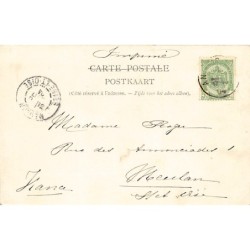 Imprimé
CARTE POSTALE
POSTKAART
(Côté réservé à l'adresse. — Zijde voor het adres alleen.)
Madame Roger
Rue des Annonciades 1
Meulan
France